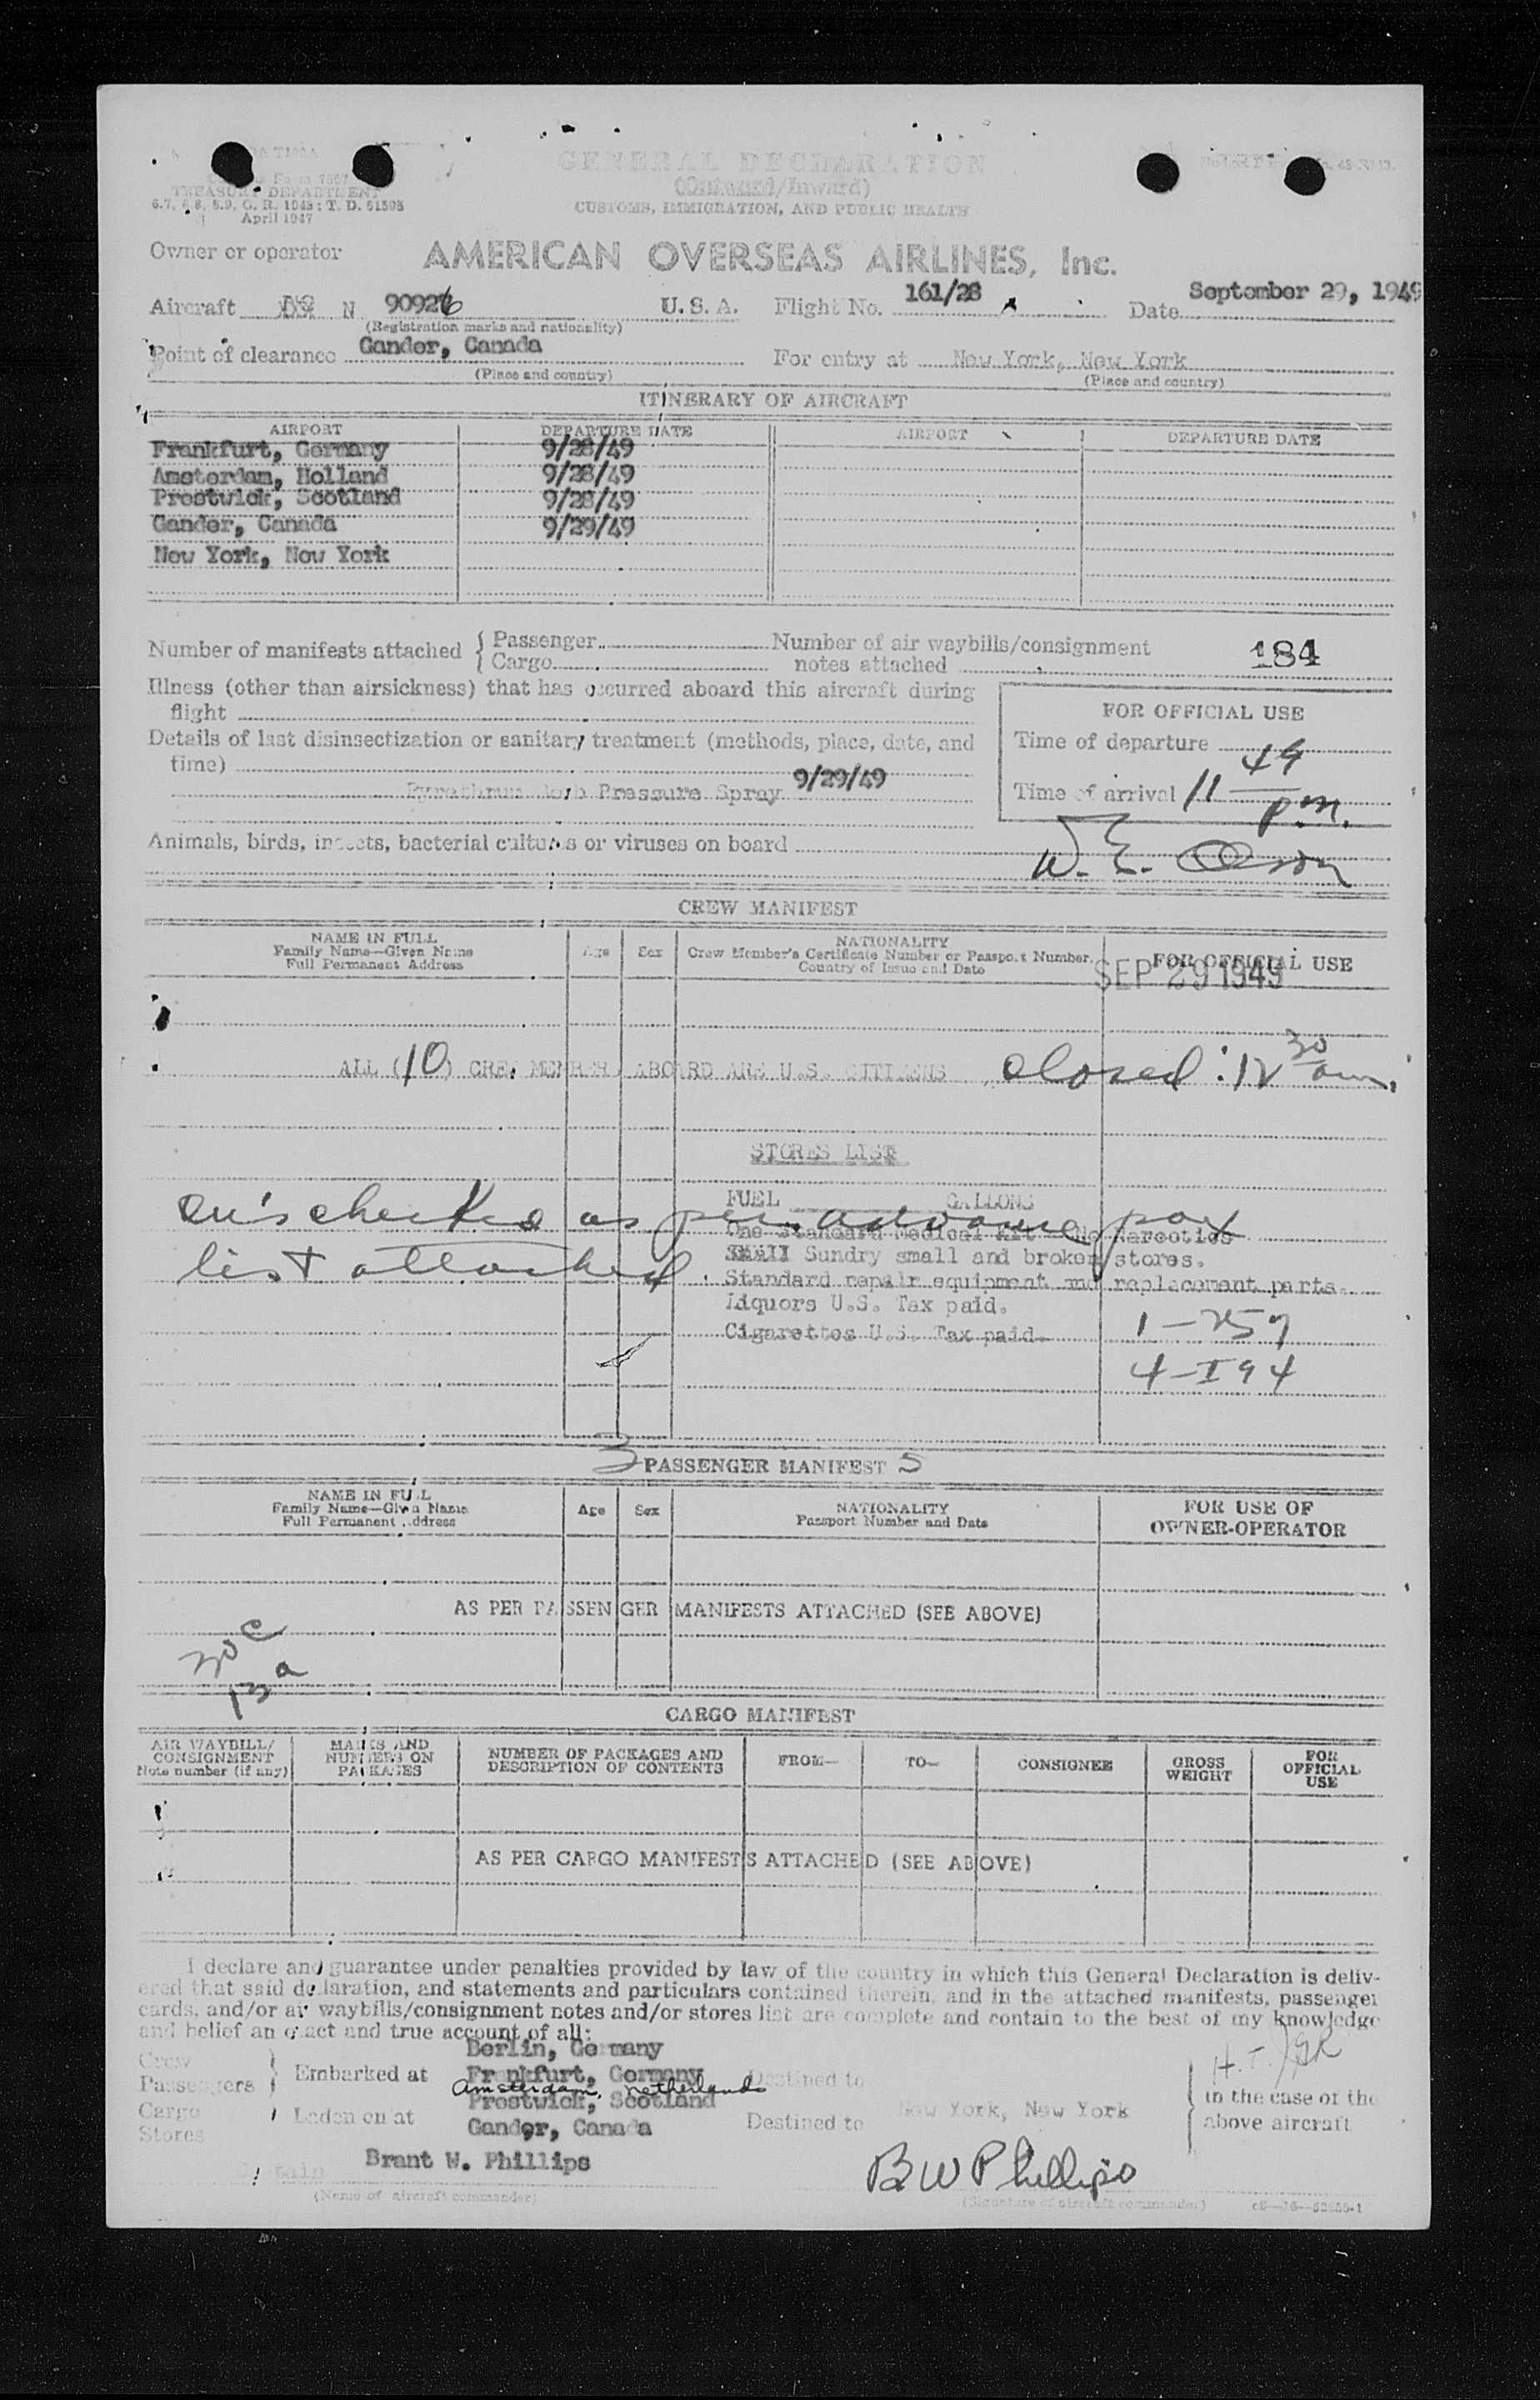 GENERAL DECLARATION
(Outward/Inward)
CUSTOMS, IMMIGRATION, AND PUBLIC HEALTH
TREASURY DEPARTMENT
April 1947
Owner or operator AMERICAN OVERSEAS AIRLINES, Inc.
Aircraft N 90926 U.S.A. Flight No. 161/28 Date September 29, 1949
(Registration marks and nationality)
Point of clearance Gander, Canada For entry at New York, New York
(Place and country) (Place and country)
ITINERARY OF AIRCRAFT
AIRPORT DEPARTURE DATE AIRPORT DEPARTURE DATE
Frankfurt, Germany 9/28/49
Amsterdam, Holland 9/28/49
Prestwick, Scotland 9/28/49
Gander, Canada 9/29/49
New York, New York
Number of manifests attached { Passenger Number of air waybills/consignment 184
Cargo notes attached
Illness (other than airsickness) that has occurred aboard this aircraft during
flight
FOR OFFICIAL USE
Details of last disinsectization or sanitary treatment (methods, place, date, and
time)
Time of departure
Pressure Spray 9/29/49
Time of arrival 11 49 p.m.
Animals, birds, insects, bacterial cultures or viruses on board
W. E. Olson
CREW MANIFEST
NAME IN FULL
Family Name—Given Name
Full Permanent Address
Age Sex
NATIONALITY
Crew Member's Certificate Number or Passport Number,
Country of Issue and Date
FOR OFFICIAL USE
SEP 29 1949
ALL (10) CREW MEMBERS ABOARD ARE U.S. CITIZENS closed: 12 30 am.
STORES LIST
FUEL GALLONS
checked as per advance pax
One Standard Medical Kit - No Narcotics
Sundry small and broken stores.
list attached.
Standard repair equipment and replacement parts.
Liquors U.S. Tax paid.
Cigarettes U.S. Tax paid.
1-257
4-I94
3 PASSENGER MANIFEST 5
NAME IN FULL
Family Name—Given Name
Full Permanent Address
Age Sex
NATIONALITY
Passport Number and Date
FOR USE OF
OWNER-OPERATOR
AS PER PASSENGER MANIFESTS ATTACHED (SEE ABOVE)
CARGO MANIFEST
AIR WAYBILL/
CONSIGNMENT
Note number (if any)
MARKS AND
NUMBERS ON
PACKAGES
NUMBER OF PACKAGES AND
DESCRIPTION OF CONTENTS
FROM—
TO—
CONSIGNEE
GROSS
WEIGHT
FOR
OFFICIAL
USE
AS PER CARGO MANIFESTS ATTACHED (SEE ABOVE)
I declare and guarantee under penalties provided by law of the country in which this General Declaration is deliv-
ered that said declaration, and statements and particulars contained therein, and in the attached manifests, passenger
cards, and/or air waybills/consignment notes and/or stores list are complete and contain to the best of my knowledge
and belief an exact and true account of all:
Berlin, Germany
Crew
Passengers } Embarked at Frankfurt, Germany Destined to
Amsterdam, Netherlands
Prestwick, Scotland
Cargo
Stores
Laden on at Gander, Canada Destined to New York, New York
in the case of the
above aircraft
Captain Brant W. Phillips B W Phillips
(Name of aircraft commander) (Signature of aircraft commander)